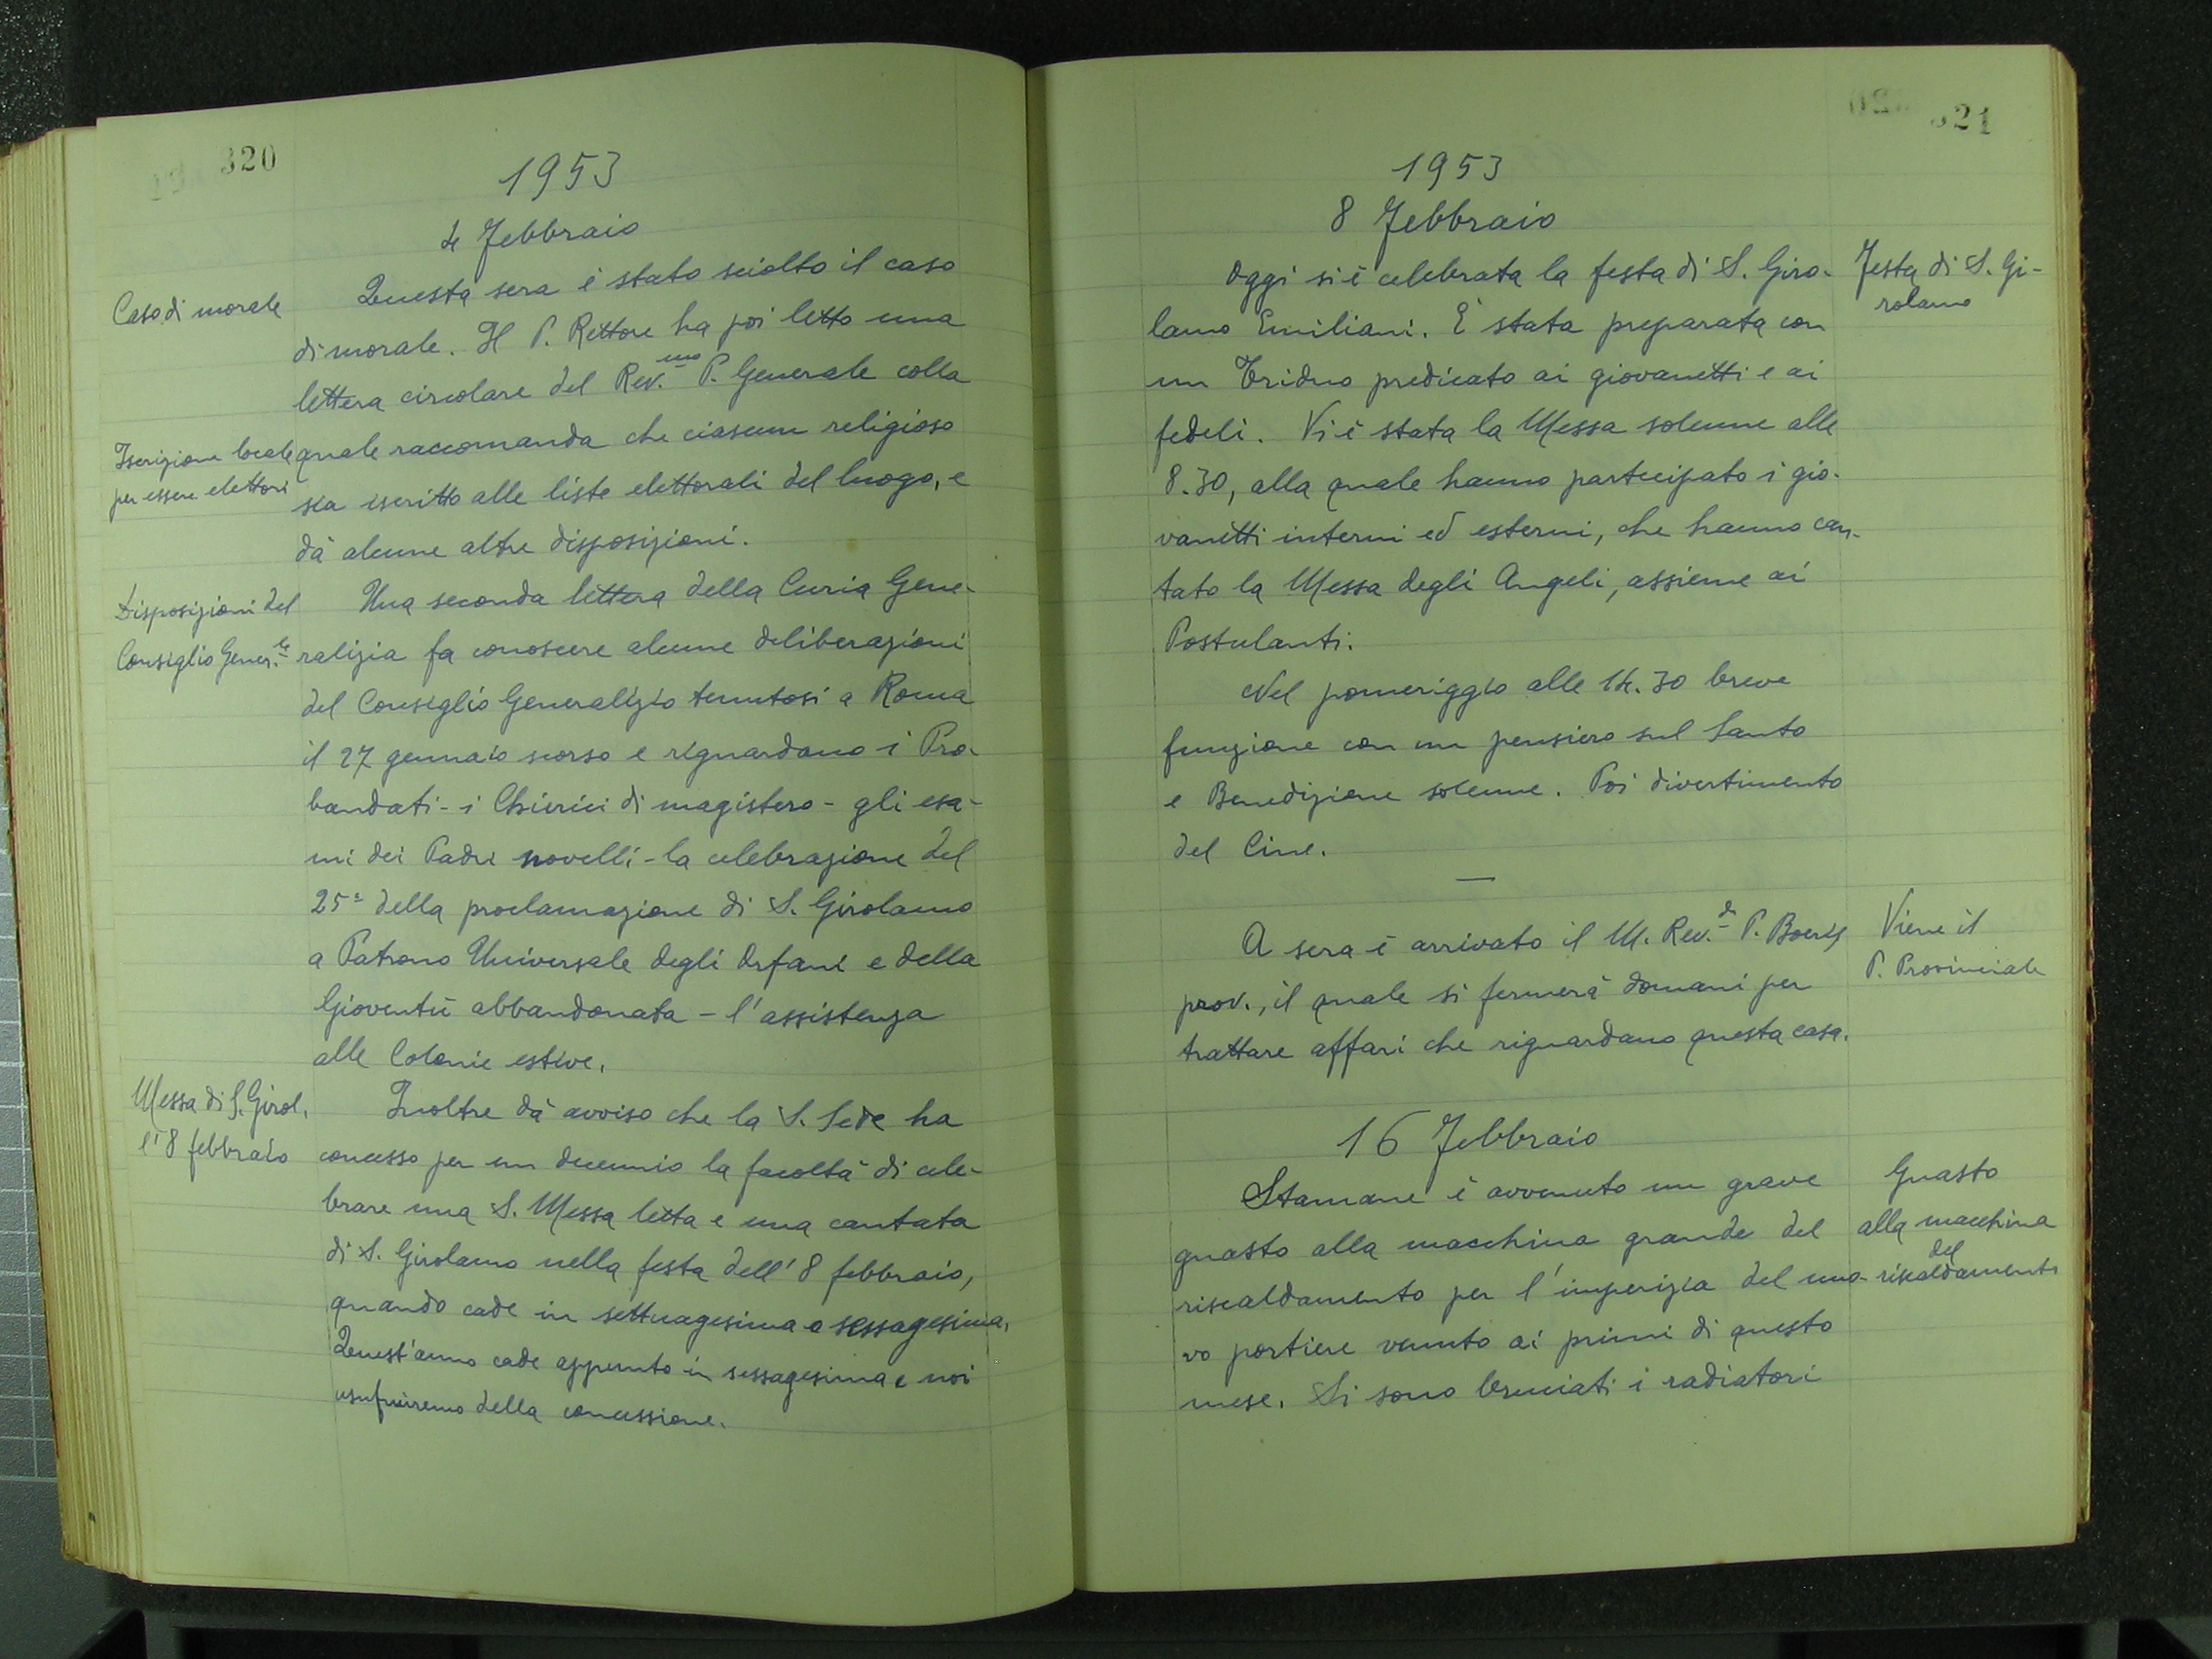 320
1953
4 Febbraio
Caso di morale
Questa sera è stato sciolto il caso
di morale. Il P. Rettore ha poi letto una
lettera circolare del Rev.mo P. Generale colla
Iscrizione locale
per essere elettori
quale raccomanda che ciascun religioso
sia iscritto alle liste elettorali del luogo, e
dà alcune altre disposizioni.
Disposizioni del
Consiglio Gener.le
Una seconda lettera della Curia Gene-
ralizia fa conoscere alcune deliberazioni
del Consiglio Generalizio tenutosi a Roma
il 27 gennaio scorso e riguardano i Pro-
bandati - i Chierici di magistero - gli esa-
mi dei Padri novelli - la celebrazione del
25° della proclamazione di S. Girolamo
a Patrono Universale degli Orfani e della
Gioventù abbandonata - l'assistenza
alle Colonie estive.
Messa di S. Girol.
l'8 febbraio
Inoltre dà avviso che la S. Sede ha
concesso per un decennio la facoltà di cele-
brare una S. Messa letta e una cantata
di S. Girolamo nella festa dell'8 febbraio,
quando cade in settuagesima o sessagesima.
Quest'anno cade appunto in sessagesima e noi
usufruiremo della concessione.
321
1953
8 Febbraio
Festa di S. Gi-
rolamo
Oggi si è celebrata la festa di S. Giro-
lamo Emiliani. È stata preparata con
un Triduo predicato ai giovanetti e ai
fedeli. Vi è stata la Messa solenne alle
8.30, alla quale hanno partecipato i gio-
vanetti interni ed esterni, che hanno can-
tato la Messa degli Angeli, assieme ai
Postulanti.
Nel pomeriggio alle 14.30 breve
funzione con un pensiero sul Santo
e Benedizione solenne. Poi divertimento
del Cine.
Viene il
P. Provinciale
A sera è arrivato il M. Rev.do P. Boeris
prov., il quale si fermerà domani per
trattare affari che riguardano questa casa.
16 Febbraio
Guasto
alla macchina
del
riscaldamento
Stamane è avvenuto un grave
guasto alla macchina grande del
riscaldamento per l'imperizia del nuo-
vo portiere venuto ai primi di questo
mese. Si sono bruciati i radiatori